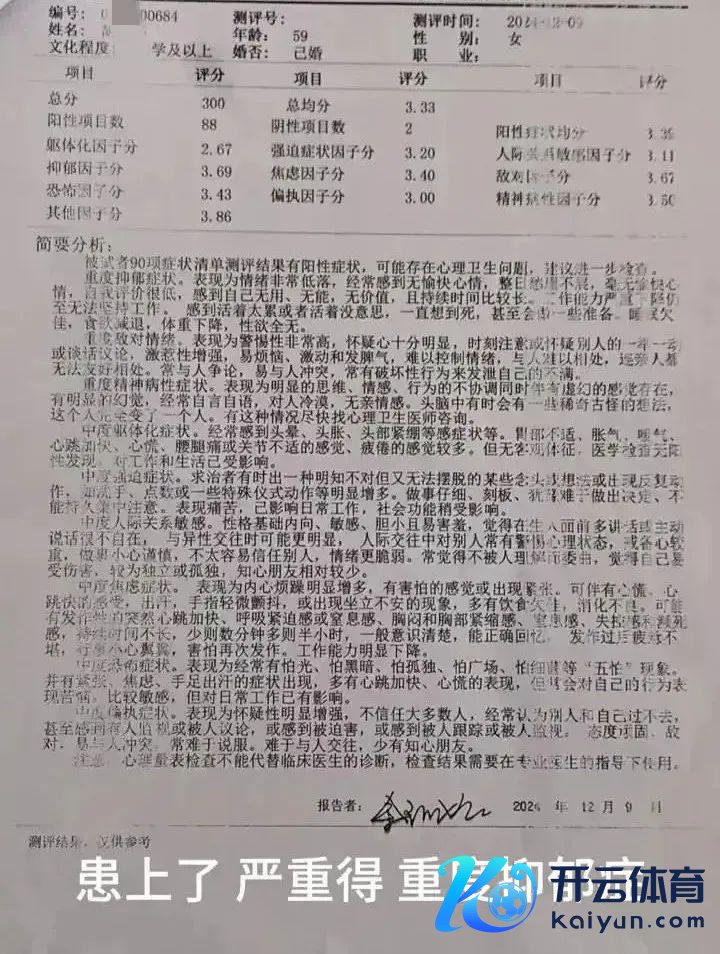 编号: 00684 测评号: 测评时间: 2024-12-09
姓名: 年龄: 59 性 别: 女
文化程度: 学及以上 婚否: 已婚 职 业:
项目 评分 项目 评分 项目 评分
总分 300 总均分 3.33
阳性项目数 88 阴性项目数 2 阳性症状均分 3.39
躯体化因子分 2.67 强迫症状因子分 3.20 人际关系敏感因子分 3.11
抑郁因子分 3.69 焦虑因子分 3.40 敌对因子分 3.67
恐怖因子分 3.43 偏执因子分 3.00 精神病性因子分 3.50
其他因子分 3.86
简要分析:
被试者90项症状清单测评结果有阳性症状，可能存在心理卫生问题，建议进一步检查。
重度抑郁症状。表现为情绪非常低落，经常感到无愉快心情，整日愁眉不展，毫无愉快心
情，自我评价很低，感到自己无用、无能，无价值，且持续时间比较长。工作能力严重下降仍
至无法坚持工作。 感到活着太累或者活着没意思，一直想到死，甚至会做一些准备。睡眠欠
佳，食欲减退，体重下降，性欲全无。
重度敌对情绪。表现为警惕性非常高，怀疑心十分明显，时刻注意或怀疑别人的一举一动
或谈话议论，激惹性增强，易烦恼、激动和发脾气，难以控制情绪，与人难以相处，远亲人都
无法友好相处。常与人争论，易与人冲突，常有破坏性行为来发泄自己的不满。
重度精神病性症状。表现为明显的思维、情感、行为的不协调同时伴有虚幻的感觉存在，
有明显的幻觉，经常自言自语，对人冷漠，无亲情感。头脑中有时会有一些稀奇古怪的想法，
这个人完全变了一个人。有这种情况尽快找心理卫生医师咨询。
中度躯体化症状。经常感到头晕、头胀、头部紧绷等感症状等。胃部不适、胀气、嗳气、
心跳加快、心慌、腰腿痛或关节不适的感觉、疲倦的感觉较多。但无客观体征，医学检查无阳
性发现，对工作和生活已受影响。
中度强迫症状。求治者有时出一种明知不对但又无法摆脱的某些念头或想法或出现反复动
作，如洗手、点数或一些特殊仪式动作等明显增多。做事仔细、刻板、犹豫难于做出决定、不
能持久集中注意。表现痛苦，已影响日常工作，社会功能稍受影响。
中度人际关系敏感。性格基础内向、敏感、胆小且易害羞，觉得在生人面前多讲话或主动
说话很不自在， 与异性交往时可能更明显， 人际交往中对别人常有警惕心理状态，戒备心较
重，做事小心谨慎，不太容易信任别人，情绪更脆弱。常觉得不被人理解而委曲，觉得自己易
受伤害，较为独立或孤独，知心朋友相对较少。
中度焦虑症状。 表现为内心烦躁明显增多，有害怕的感觉或出现紧张。可伴有心慌、心
跳快的感受，出汗，手指轻微颤抖，或出现坐立不安的现象，多有饮食欠佳，消化不良，可能
有发作性的突然心跳加快、呼吸紧迫感或窒息感、胸闷和胸部紧缩感、窒息感、失控感和濒死
感，持续时间不长，少则数分钟多则半小时，一般意识清楚，能正确回忆。 发作过后疲惫不
堪，行事小心翼翼，害怕再次发作。工作能力明显下降。
中度恐怖症状。表现为经常有怕光、怕黑暗、怕孤独、怕广场、怕细菌等“五怕”现象。
并有紧张、焦虑、手足出汗的症状出现，多有心跳加快、心慌的表现，但常会对自己的行为表
现苦恼，比较敏感，但对日常工作已有影响。
中度偏执症状。表现为怀疑性明显增强，不信任大多数人，经常认为别人和自己过不去，
甚至感到有人监视或被人议论，或感到被迫害，或感到被人跟踪或被人监视。 态度顽固、敌
对，易与人冲突，常难于说服。难于与人交往，少有知心朋友。
注意：心理量表检查不能代替临床医生的诊断，检查结果需要在专业医生的指导下使用。
报告者: 2024 年 12 月 9 日
测评结果，仅供参考
患上了 严重得 重度抑郁症
开云体育
kaiyun.com